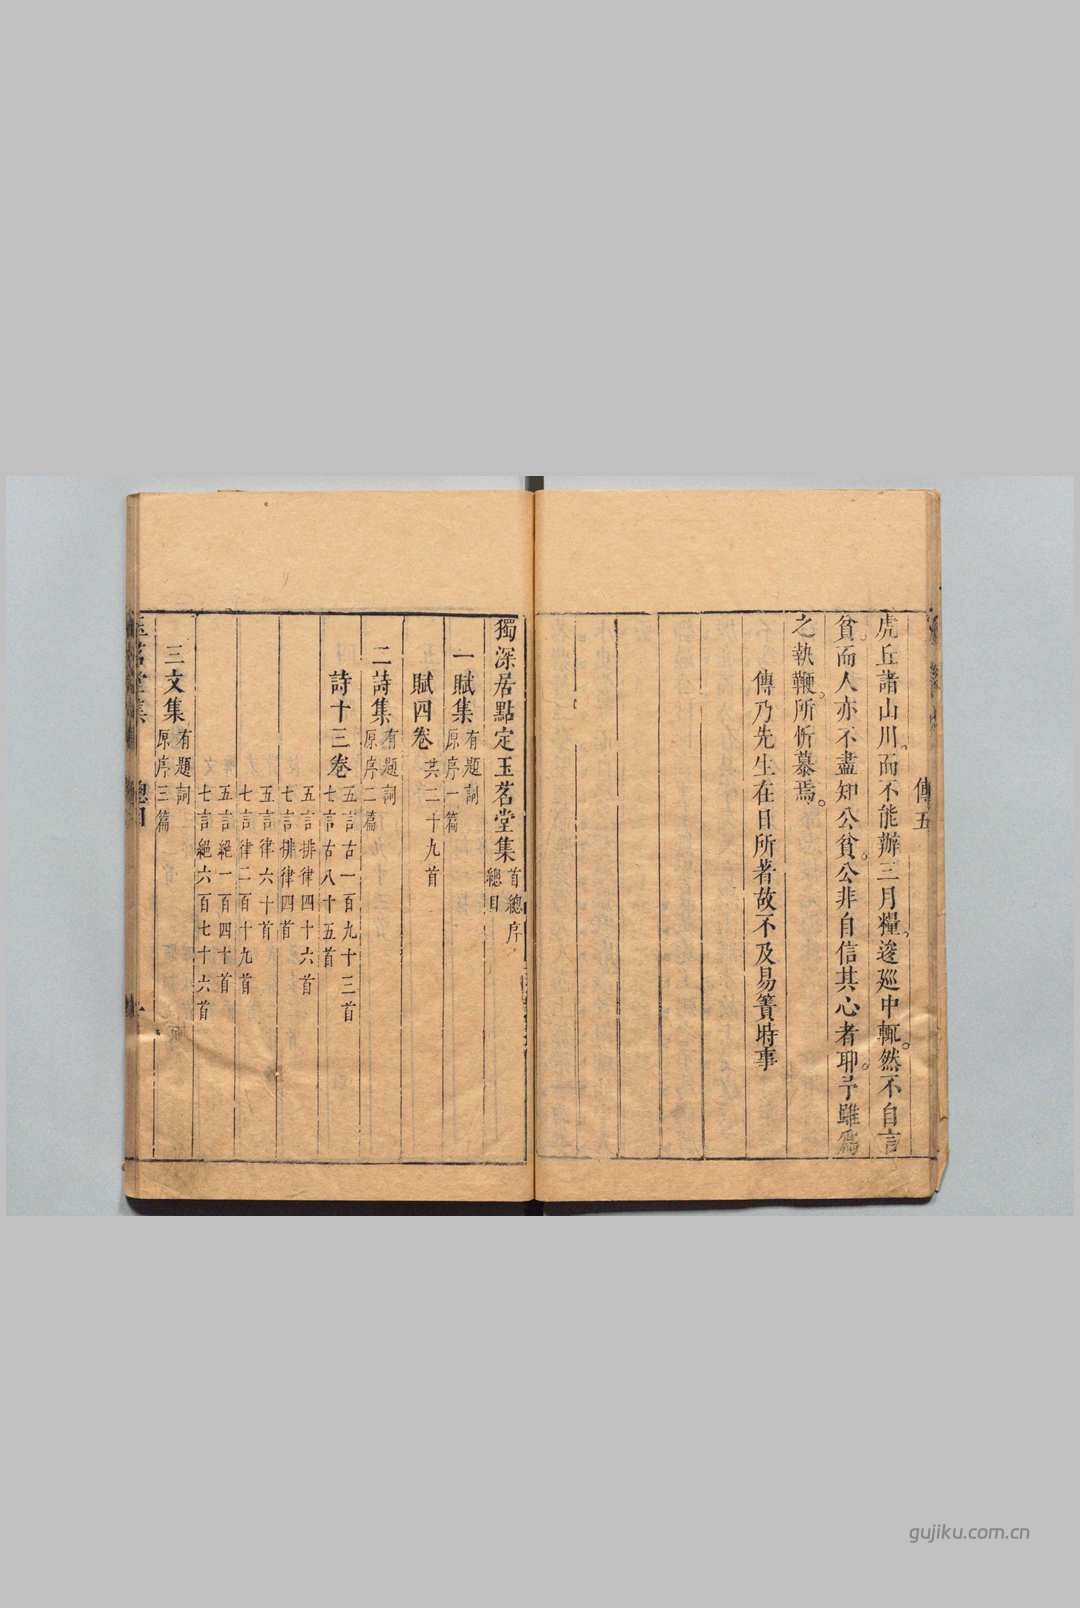 傳五
虎丘諸山川。而不能辦三月糧。逡廵中輒。然不自言
貧。而人亦不盡知公貧。公非自信其心者耶。予雖爲
之執鞭。所忻慕焉。
傳乃先生在日所著故不及易簀時事
獨深居點定玉茗堂集 首總序
總目
一賦集 有題詞
原序一篇
賦四卷 共二十九首
二詩集 有題詞
原序二篇
詩十三卷 五言古一百九十三首
七言古八十五首
五言排律四十六首
七言排律四首
五言律六十首
七言律二百十九首
五言絕一百四十首
七言絕六百七十六首
三文集 有題詞
原序三篇
玉茗堂集 總目 一
gujiku.com.cn